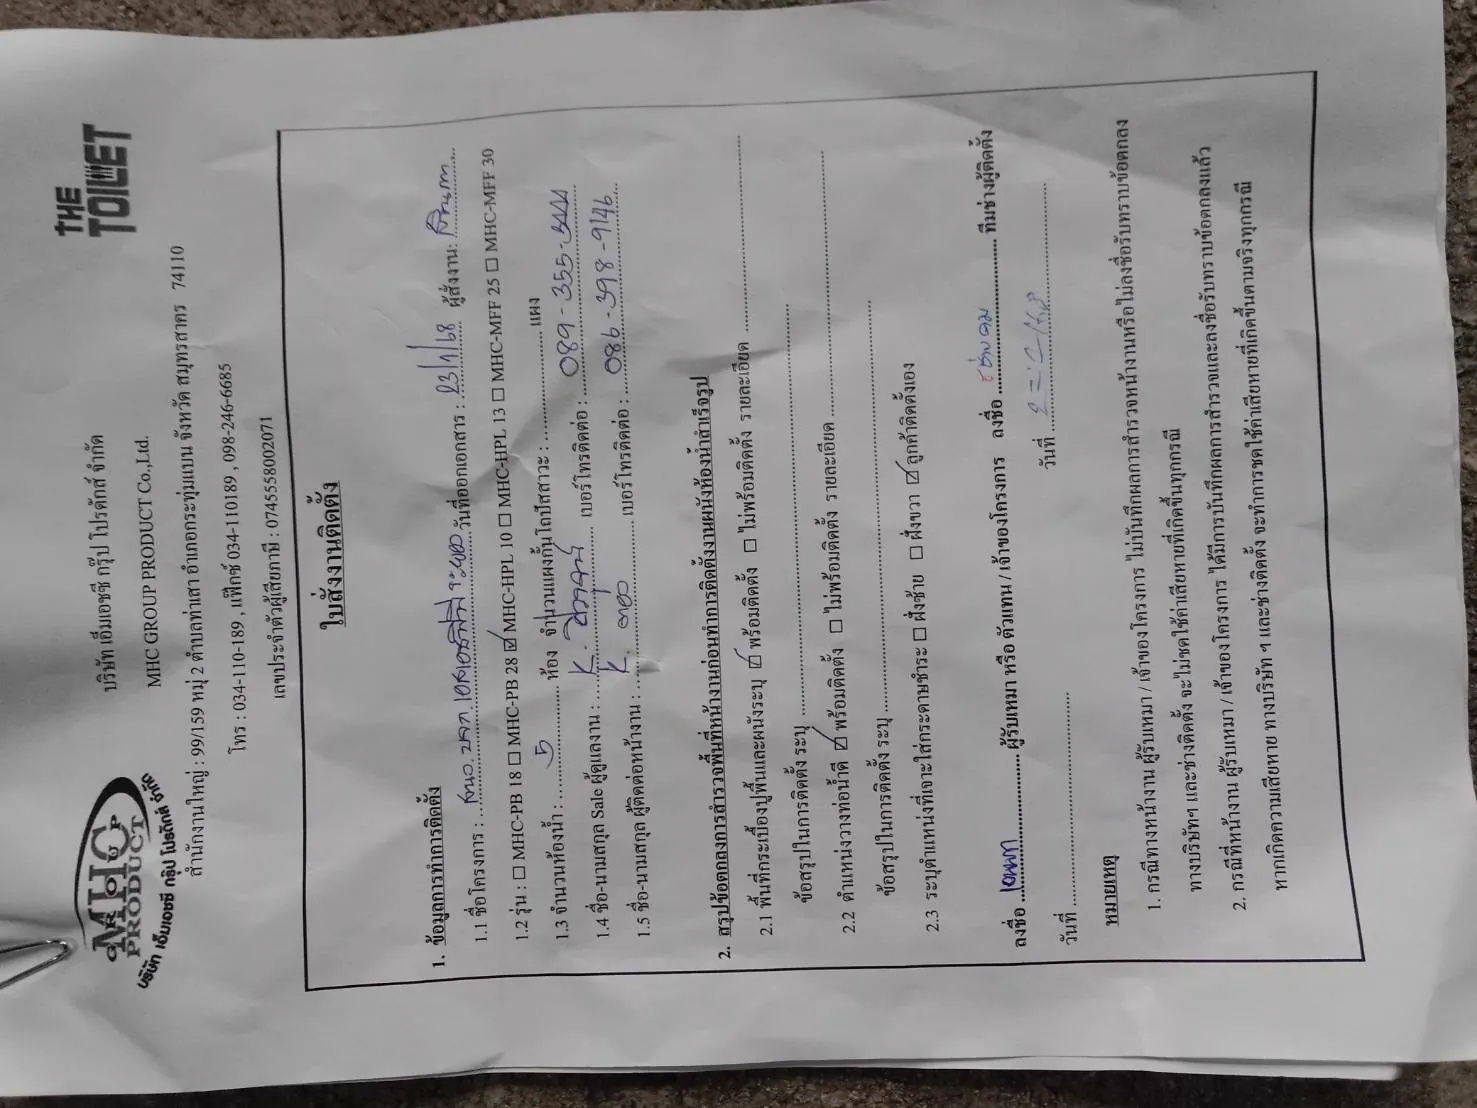 MHC
GROUP
PRODUCT
บริษัท เอ็มเอชซี กรุ๊ป โปรดักส์ จำกัด
THE
TOILET
บริษัท เอ็มเอชซี กรุ๊ป โปรดักส์ จำกัด
MHC GROUP PRODUCT Co.,Ltd.
สำนักงานใหญ่ : 99/159 หมู่ 2 ตำบลท่าเสา อำเภอกระทุ่มแบน จังหวัด สมุทรสาคร 74110
โทร : 034-110-189 , แฟ็กซ์ 034-110189 , 098-246-6685
เลขประจำตัวผู้เสียภาษี : 0745558002071
ใบสั่งงานติดตั้ง
1. ข้อมูลการทำการติดตั้ง
1.1 ชื่อโครงการ : วันที่ออกเอกสาร : 23/1/68 ผู้สั่งงาน:
1.2 รุ่น : ☐ MHC-PB 18 ☐ MHC-PB 28 ☑ MHC-HPL 10 ☐ MHC-HPL 13 ☐ MHC-MFF 25 ☐ MHC-MFF 30
1.3 จำนวนห้องน้ำ : 5 ห้อง จำนวนแผงกั้นโถปัสสาวะ : แผง
1.4 ชื่อ-นามสกุล Sale ผู้ดูแลงาน : K. เบอร์โทรติดต่อ : 089-355-5444
1.5 ชื่อ-นามสกุล ผู้ติดต่อหน้างาน : K. เบอร์โทรติดต่อ : 086-398-9146
2. สรุปข้อตกลงการสำรวจพื้นที่หน้างานก่อนทำการติดตั้งงานผนังห้องน้ำสำเร็จรูป
2.1 พื้นที่กระเบื้องปูพื้นและผนังระบุ ☑ พร้อมติดตั้ง ☐ ไม่พร้อมติดตั้ง รายละเอียด
ข้อสรุปในการติดตั้ง ระบุ
2.2 ตำแหน่งวางท่อน้ำดี ☑ พร้อมติดตั้ง ☐ ไม่พร้อมติดตั้ง รายละเอียด
ข้อสรุปในการติดตั้ง ระบุ
2.3 ระบุตำแหน่งที่เจาะใส่กระดาษชำระ ☐ ฝั่งซ้าย ☐ ฝั่งขวา ☑ ลูกค้าติดตั้งเอง
ลงชื่อ ผู้รับเหมา หรือ ตัวแทน / เจ้าของโครงการ ลงชื่อ ทีมช่างผู้ติดตั้ง
วันที่ วันที่
หมายเหตุ
1. กรณีทางหน้างาน ผู้รับเหมา / เจ้าของโครงการ ไม่บันทึกผลการสำรวจหน้างานหรือไม่ลงชื่อรับทราบข้อตกลง
ทางบริษัทฯ และช่างติดตั้ง จะไม่ชดใช้ค่าเสียหายที่เกิดขึ้นทุกกรณี
2. กรณีที่หน้างาน ผู้รับเหมา / เจ้าของโครงการ ได้มีการบันทึกผลการสำรวจและลงชื่อรับทราบข้อตกลงแล้ว
หากเกิดความเสียหาย ทางบริษัท ฯ และช่างติดตั้ง จะทำการชดใช้ค่าเสียหายที่เกิดขึ้นตามจริงทุกกรณี